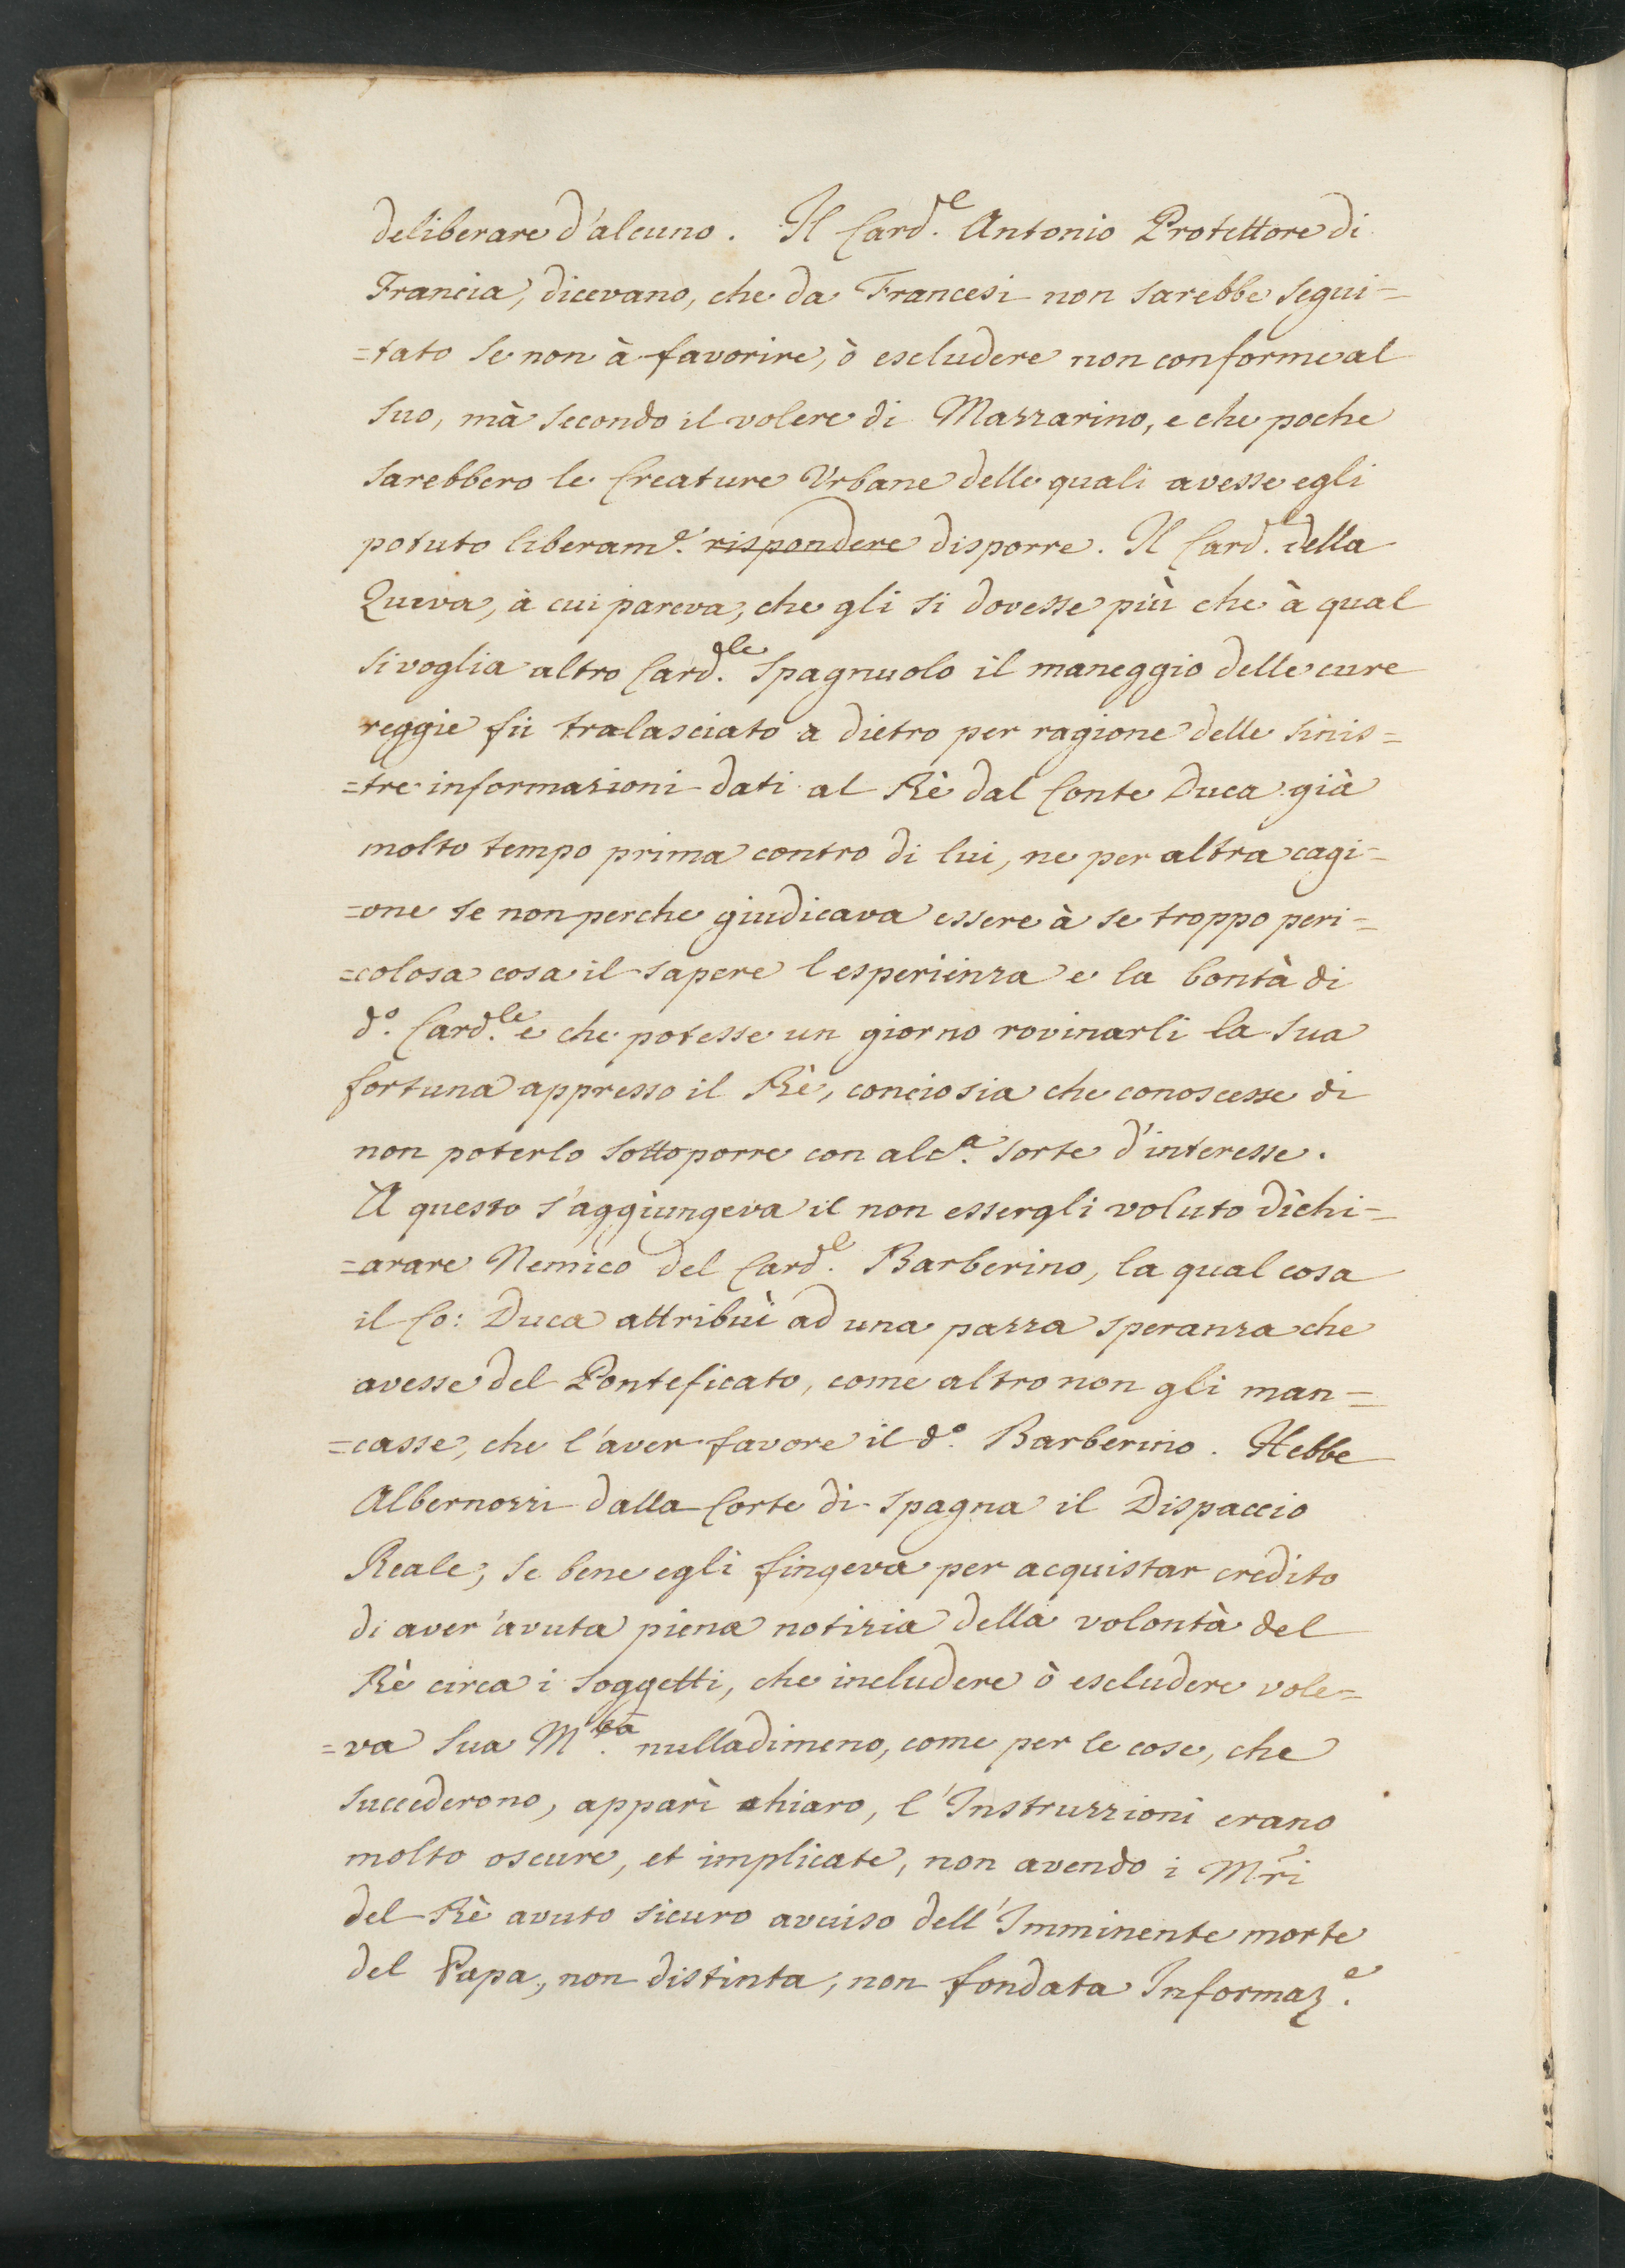 deliberare d'alcuno. Il Card.^e Antonio Protettore di
Francia, dicevano, che da Francesi non sarebbe segui=
=tato se non à favorire, ò escludere non conforme al
suo, mà secondo il volere di Mazzarino, e che poche
sarebbero le Creature Urbane delle quali avesse egli
potuto liberam.^e ~~rispondere~~ disporre. Il Card.^l della
Queva, à cui pareva, che gli si dovesse più che à qual
si voglia altro Card.^le Spagnuolo il maneggio delle cure
reggie fù tralasciato a dietro per ragione delle sinis=
=tre informazioni dati al Rè dal Conte Duca già
molto tempo prima contro di lui, ne per altra cagi=
=one se non perche giudicava essere à se troppo peri=
=colosa cosa il sapere l esperienza e la bontà di
d.^o Card.^le e che potesse un giorno rovinarli la sua
fortuna appresso il Rè, conciosia che conoscesse di
non poterlo sottoporre con alc.^a sorte d'interesse.
A questo s'aggiungeva il non essergli voluto dichi=
=arare Nemico del Card.^l Barberino, la qual cosa
il Co: Duca attribuì ad una pazza speranza che
avesse del Ponteficato, come altro non gli man=
=casse, che l'aver favore il d.^o Barberino. Hebbe
Albernozzi dalla Corte di Spagna il Dispaccio
Reale, se bene egli fingeva per acquistar credito
di aver'avuta piena notizia della volontà del
Rè circa i soggetti, che includere ò escludere vole=
=va Sua M.^tà nulladimeno, come per le cose, che
succederono, apparì chiaro, l'Instruzzioni erano
molto oscure, et implicate, non avendo i Mri
del Rè avuto sicuro avviso dell'Imminente morte
del Papa, non distinta, non fondata Informaz.^e